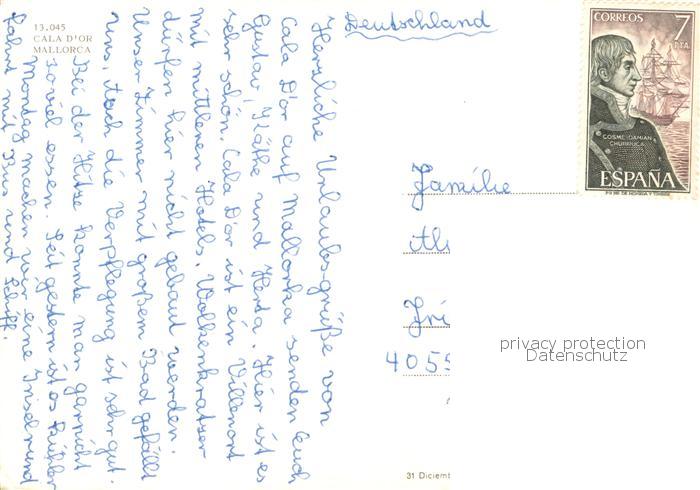 13.045
CALA D'OR
MALLORCA
Deutschland
Herzliche Urlaubsgrüße von
Cala D'or auf Mallorka senden Euch
Gustav, Käthe und Herta. Hier ist es
sehr schön, Cala D'or ist ein Villenort
mit mittleren Hotels. Wolkenkratzer
dürfen hier nicht gebaut werden.
Unser Zimmer mit großem Bad gefällt
uns, auch die Verpflegung ist sehr gut.
Bei der Hitze konnte man garnicht
so viel essen. Seit gestern ist es kühler
Montag machen wir eine Inselrund
fahrt mit Bus und Schiff.
CORREOS 7 PTA
COSME DAMIAN
CHURRUCA
ESPAÑA
Familie
4055
privacy protection
Datenschutz
31 Diciemb